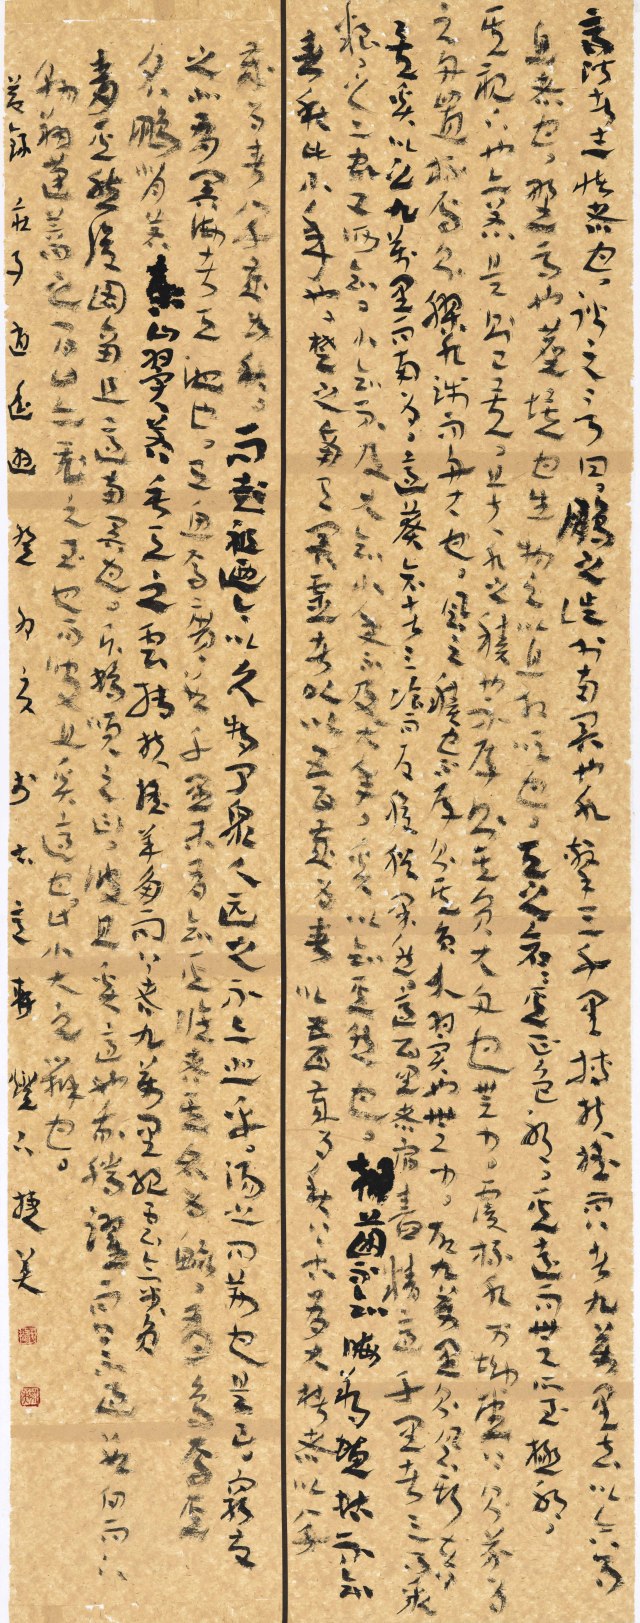 齊諧者志怪者也諧之言曰鵬之徙於南冥也水擊三千里摶扶搖而上者九萬里去以六月
息者也野馬也塵埃也生物之以息相吹也天之蒼蒼其正色邪其遠而無所至極邪
其視下也亦若是則已矣且夫水之積也不厚則其負大舟也無力覆杯水於坳堂之上則芥為
之舟置杯焉則膠水淺而舟大也風之積也不厚則其負大翼也無力故九萬里則風斯在下
奚以之九萬里而南為適莽蒼者三飡而反腹猶果然適百里者宿舂糧適千里者三月聚
糧之二蟲又何知小知不及大知小年不及大年奚以知其然也朝菌不知晦朔蟪蛄不知
春秋此小年也楚之南有冥靈者以五百歲為春以五百歲為秋上古有大椿者以八千
歲為春八千歲為秋而彭祖乃今以久特聞眾人匹之不亦悲乎湯之問棘也是已窮髮
之北有冥海者天池也有魚焉其廣數千里未有知其修者其名為鯤有鳥焉其
名鵬背若泰山翼若垂天之雲摶扶搖羊角而上者九萬里絕雲氣負
青天然後圖南且適南冥也斥鴳笑之曰彼且奚適也我騰躍而上不過數仞而下
翱翔蓬蒿之間此亦飛之至也而彼且奚適也此小大之辯也
莊子逍遙遊 癸卯 燈下 捷美